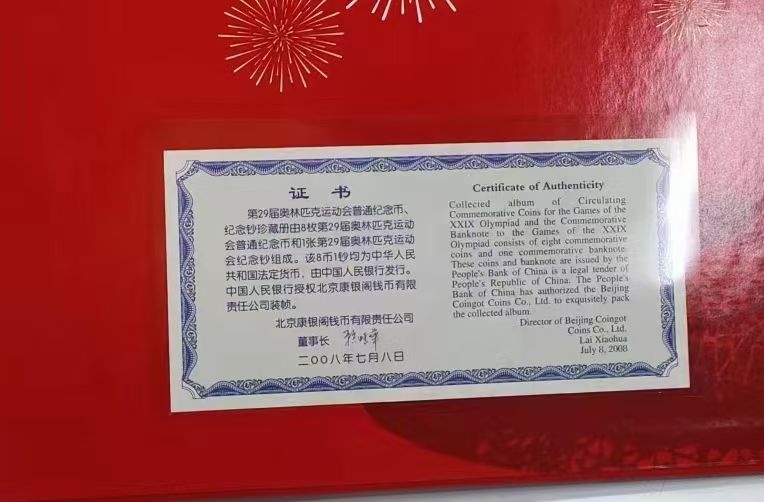 证书
第29届奥林匹克运动会普通纪念币、
纪念钞珍藏册由8枚第29届奥林匹克运动
会普通纪念币和1张第29届奥林匹克运动
会纪念钞组成。该8币1钞均为中华人民
共和国法定货币，由中国人民银行发行。
中国人民银行授权北京康银阁钱币有限
责任公司装帧。
北京康银阁钱币有限责任公司
董事长
二〇〇八年七月八日
Certificate of Authenticity
Collected album of Circulating
Commemorative Coins for the Games of the
XXIX Olympiad and the Commemorative
Banknote to the Games of the XXIX
Olympiad consists of eight commemorative
coins and one commemorative banknote.
These coins and banknote are issued by the
People's Bank of China is a legal tender of
People's Republic of China. The People's
Bank of China has authorized the Beijing
Coingot Coins Co., Ltd. to exquisitely pack
the collected album.
Director of Beijing Coingot
Coins Co., Ltd.
Lai Xiaohua
July 8, 2008